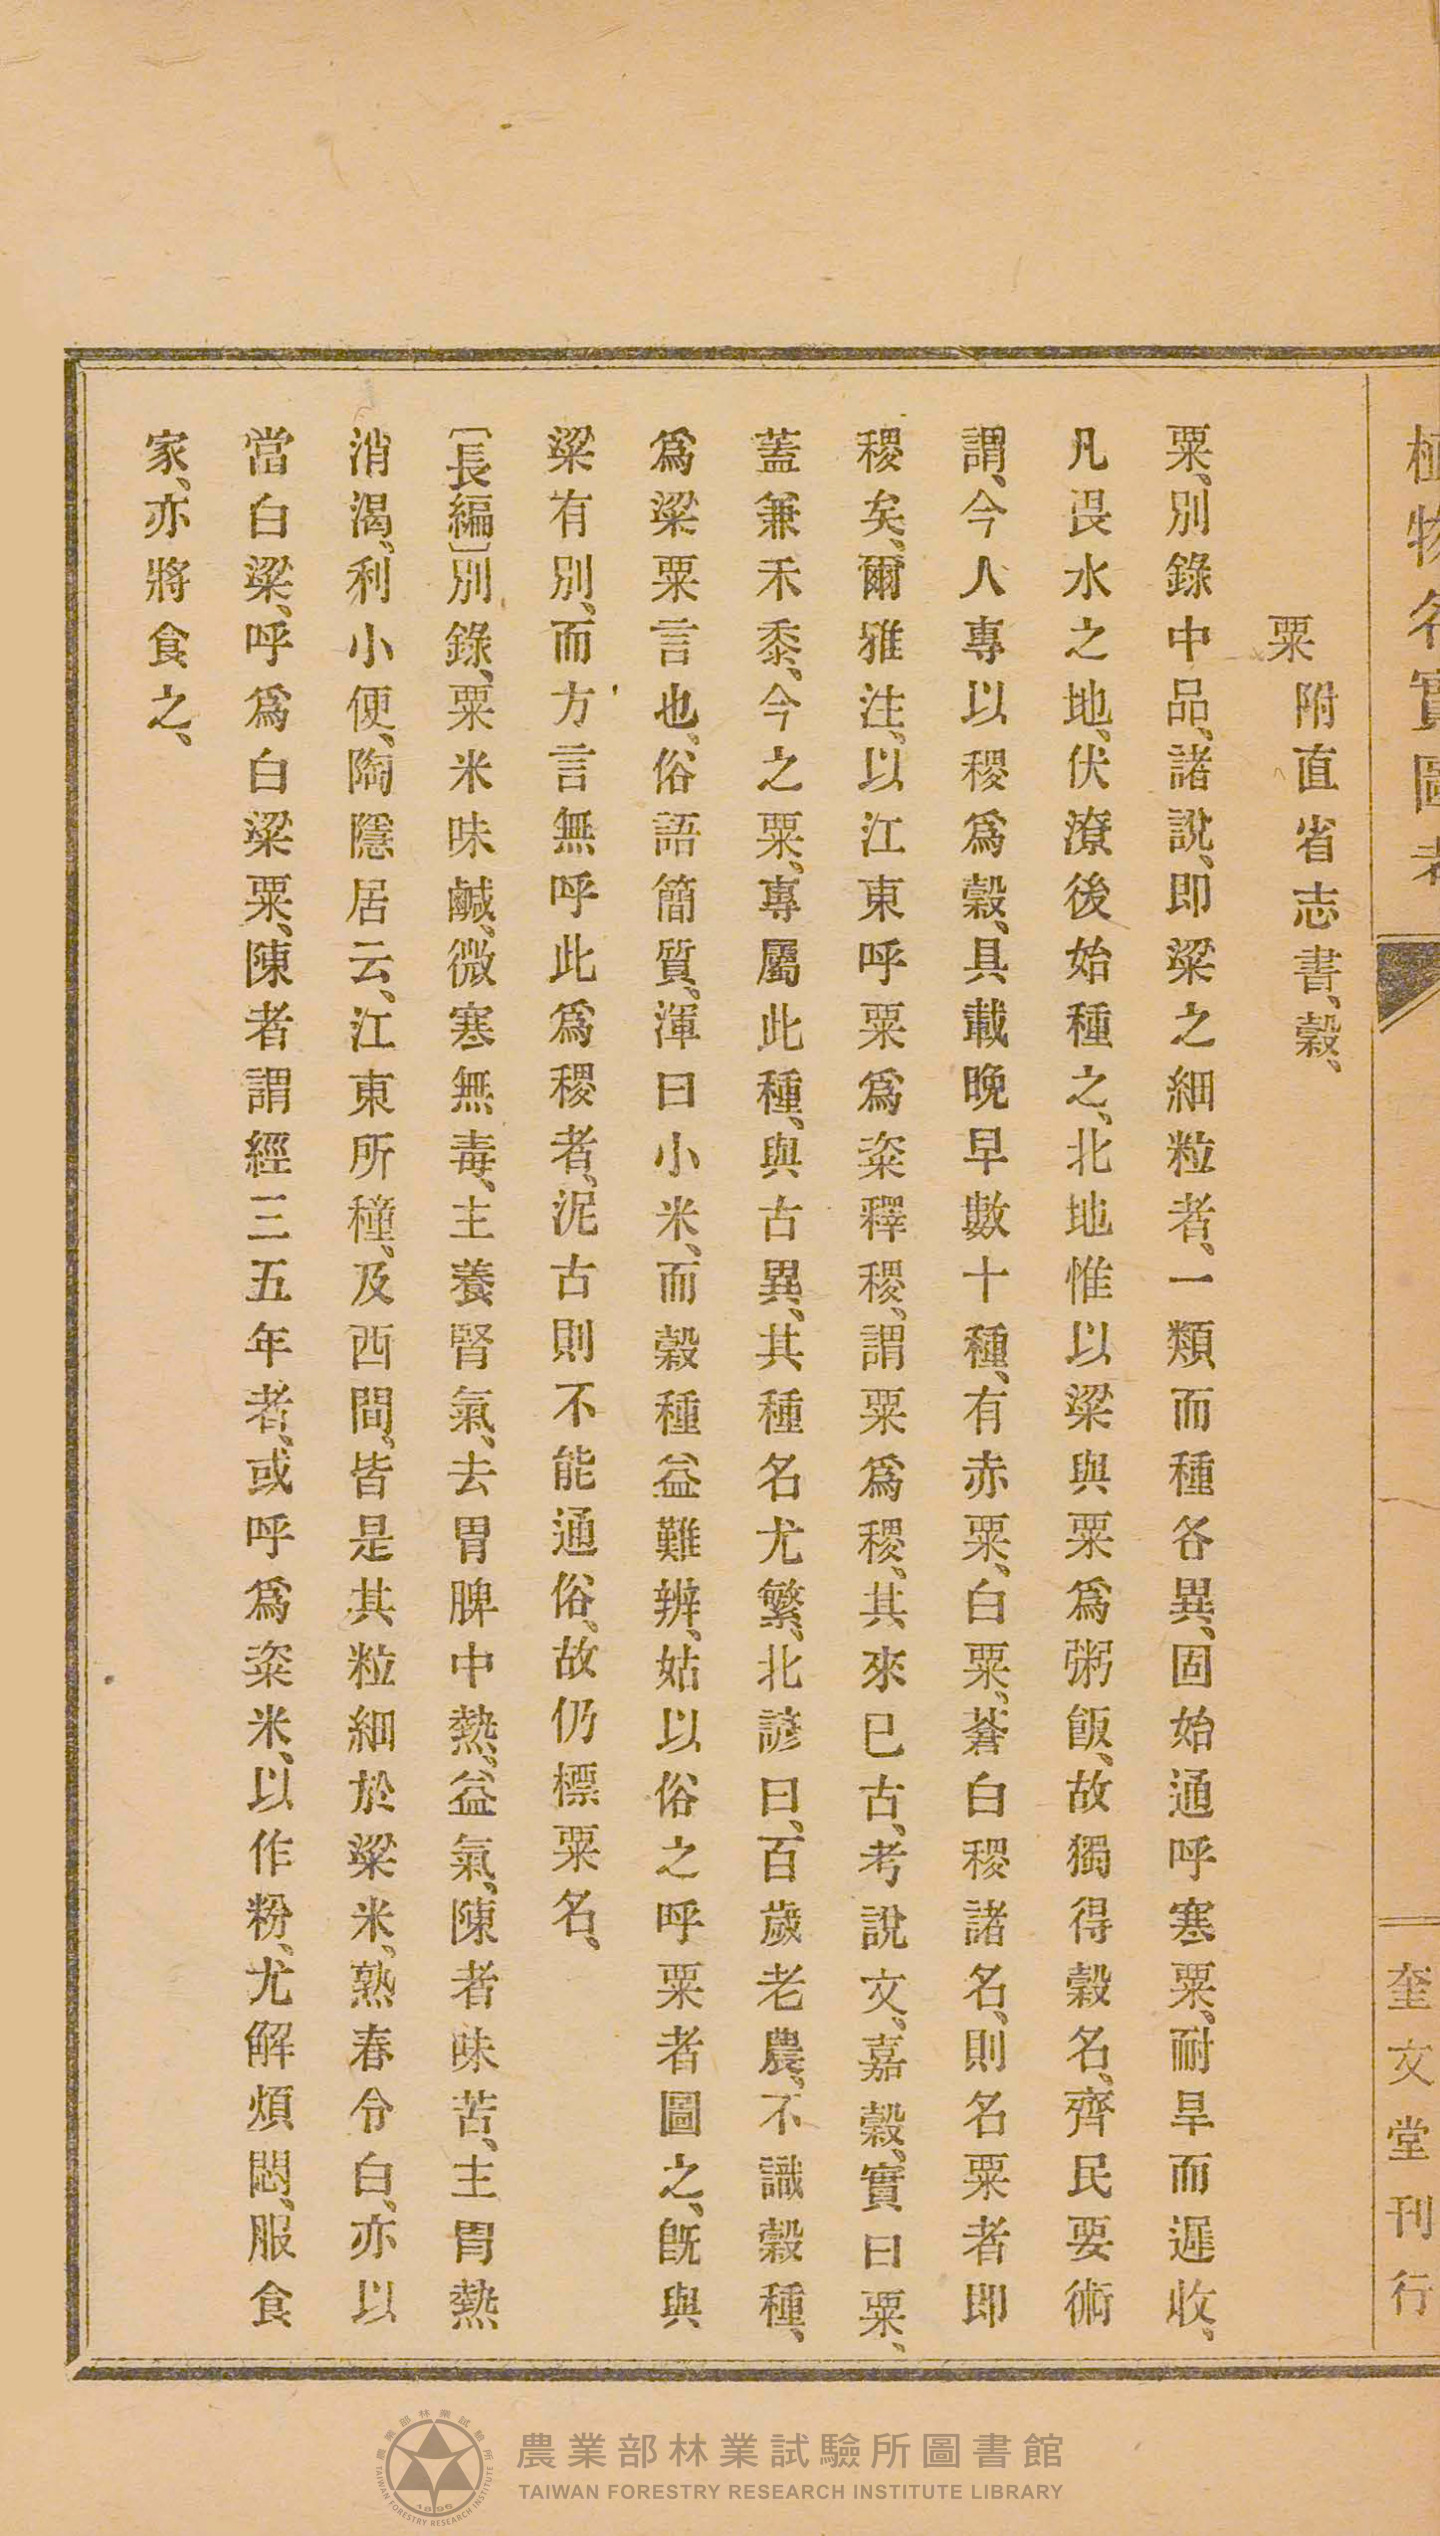 植物名實圖考
奎文堂刊行
粟 附直省志書、穀、
粟、別錄中品、諸說、即粱之細粒者、一類而種各異、固始通呼寒粟、耐旱而遲收、
凡畏水之地、伏潦後始種之、北地惟以粱與粟爲粥飯、故獨得穀名、齊民要術
謂、今人專以稷爲穀、具載晚早數十種、有赤粟、白粟、蒼白稷諸名、則名粟者即
稷矣、爾雅注、以江東呼粟爲粢釋稷、謂粟爲稷、其來已古、考說文、嘉穀、實曰粟、
蓋兼禾黍、今之粟、專屬此種、與古異、其種名尤繁、北諺曰、百歲老農、不識穀種、
爲粱粟言也、俗語簡質、渾曰小米、而穀種益難辨、姑以俗之呼粟者圖之、旣與
粱有別、而方言無呼此爲稷者、泥古則不能通俗、故仍標粟名、
〔長編〕別錄、粟米味鹹、微寒無毒、主養腎氣、去胃脾中熱、益氣、陳者味苦、主胃熱
消渴、利小便、陶隱居云、江東所種、及西間、皆是其粒細於粱米、熟舂令白、亦以
當白粱、呼爲白粱粟、陳者謂經三五年者、或呼爲粢米、以作粉、尤解煩悶、服食
家、亦將食之、
農業部林業試驗所圖書館
TAIWAN FORESTRY RESEARCH INSTITUTE LIBRARY
農業部林業試驗所
TAIWAN FORESTRY RESEARCH INSTITUTE
1896